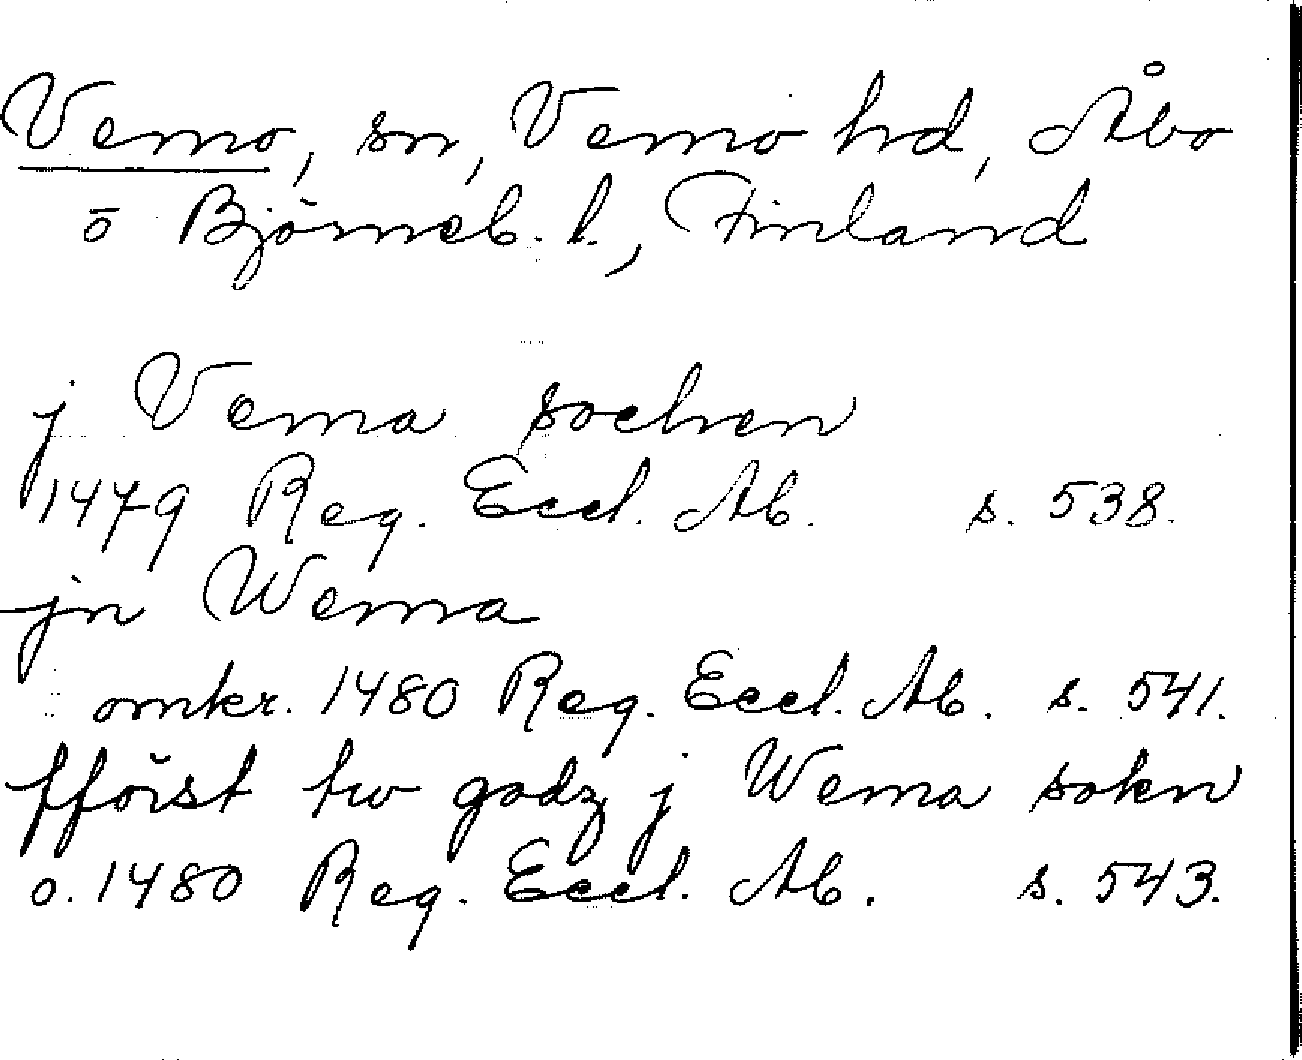 Vemo, sn, Vemo hd, Åbo
o Björneb. l., Finland
j Vema sochen
1479 Reg. Eccl. Ab. s. 538.
jn Wema
omkr. 1480 Reg. Eccl. Ab. s. 541.
fförst tw godz j Wema sokn
o. 1480 Reg. Eccl. Ab. s. 543.